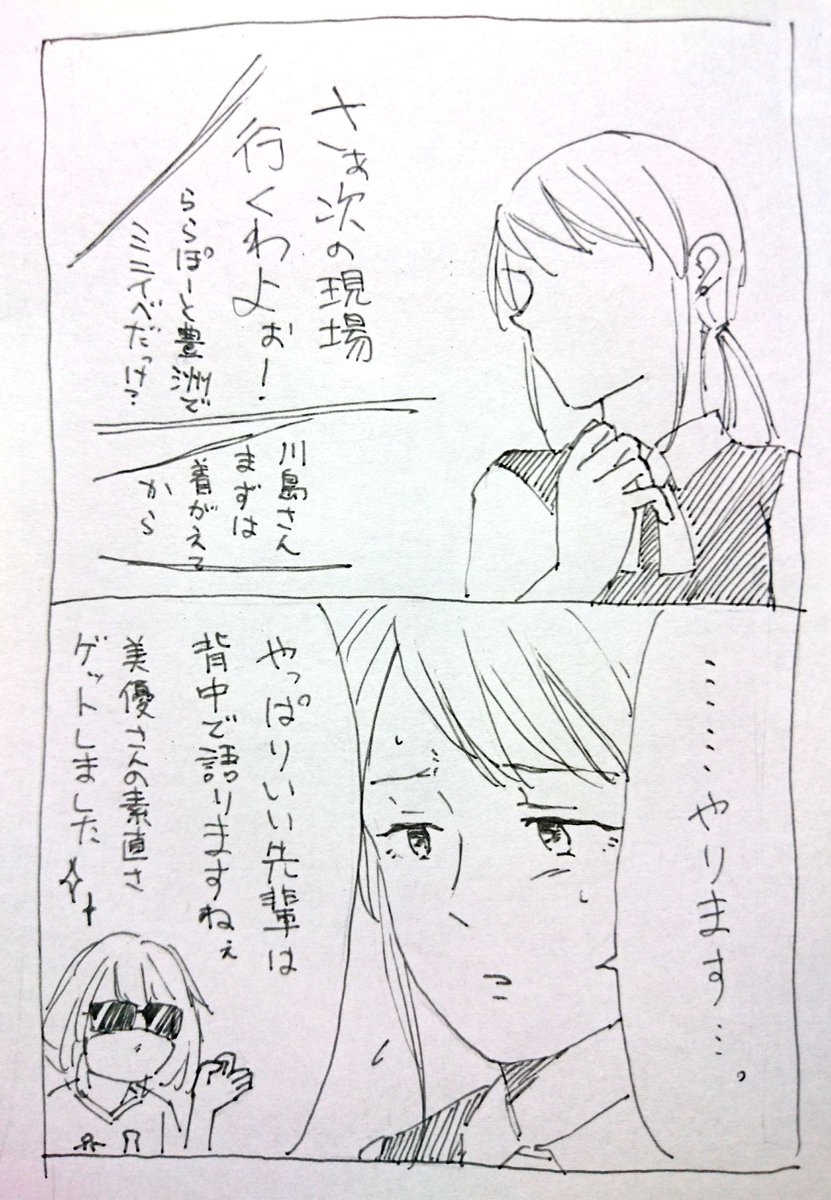 さぁ次の現場
行くわよぉ!
ららぽーと豊洲で
ミニイベだっけ?
川島さん
まずは
着がえて
から
………やります…。
やっぱりいい先輩は
背中で語りますねぇ
美優さんの素直さ
ゲットしました